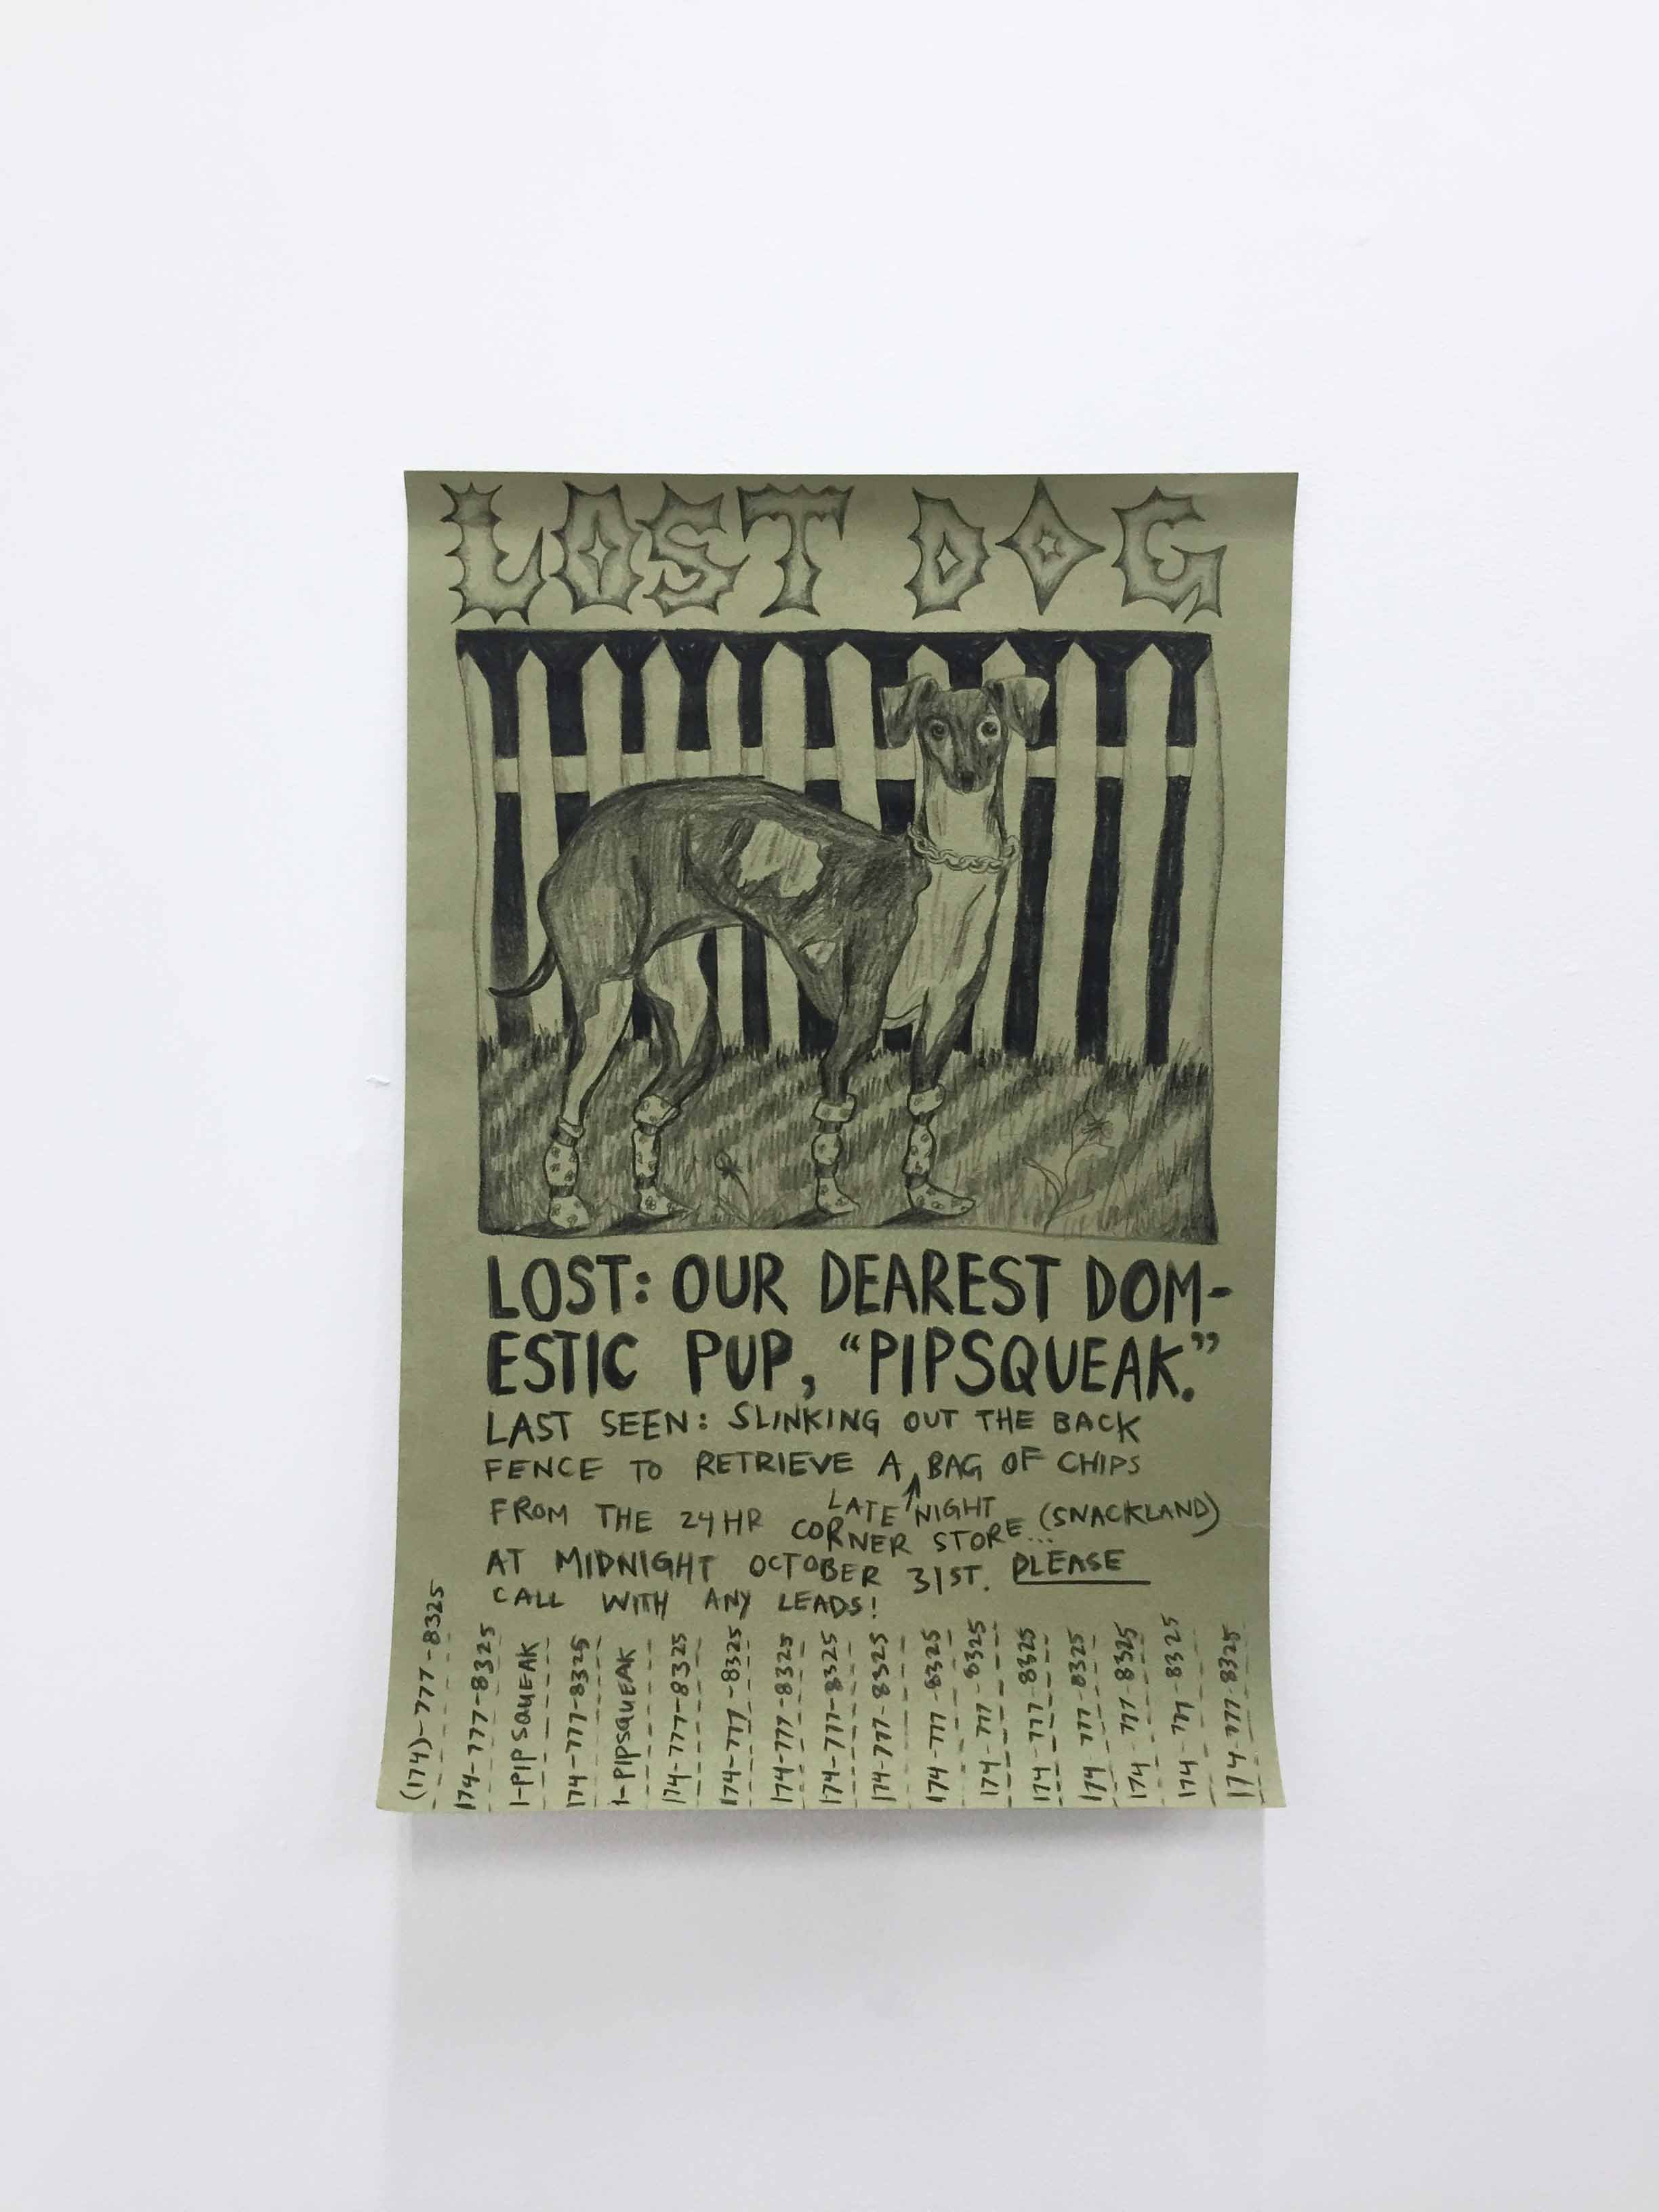 LOST DOG
LOST: OUR DEAREST DOM-
ESTIC PUP, "PIPSQUEAK."
LAST SEEN: SLINKING OUT THE BACK
FENCE TO RETRIEVE A BAG OF CHIPS
LATE NIGHT
FROM THE 24HR CORNER STORE... (SNACKLAND)
AT MIDNIGHT OCTOBER 31ST. PLEASE
CALL WITH ANY LEADS!
(174)-777-8325
174-777-8325
1-PIPSQUEAK
174-777-8325
1-PIPSQUEAK
174-777-8325
174-777-8325
174-777-8325
174-777-8325
174-777-8325
174-777-8325
174-777-8325
174-777-8325
174 777-8325
174 777 8325
174-777-8325
174-777-8325